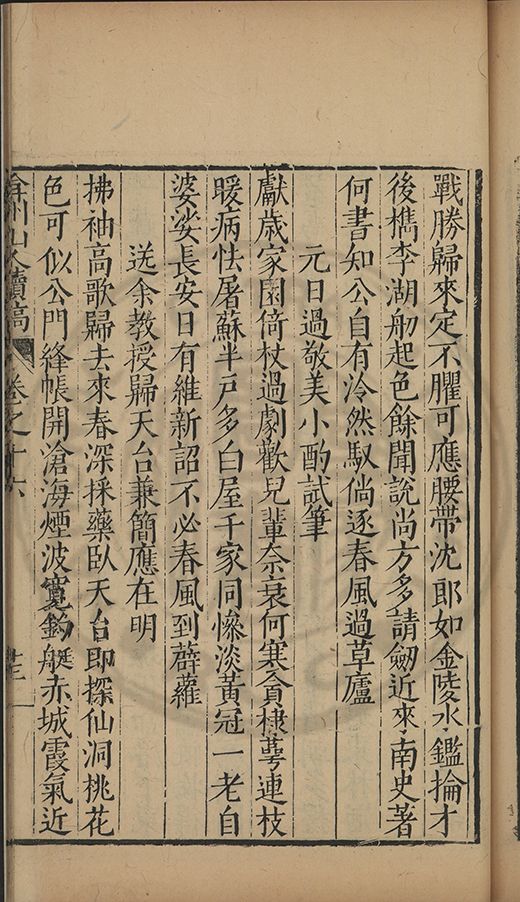 戰勝歸來定不臞可應腰帶沈郎如金陵水鑑掄才
後檇李湖舠起色餘聞說尚方多請劒近來南史著
何書知公自有泠然馭倘逐春風過草廬
元日過敬美小酌試筆
獻歲家園倚杖過劇歡兒輩奈衰何寒貪棣萼連枝
暖病怯屠蘇半戶多白屋千家同慘淡黃冠一老自
婆娑長安日有維新詔不必春風到薜蘿
送余教授歸天台兼簡應在明
拂袖高歌歸去來春深採藥臥天台即探仙洞桃花
色可似公門絳帳開滄海煙波寬釣艇赤城霞氣近
弇州山人續稿 卷之十六 廿三